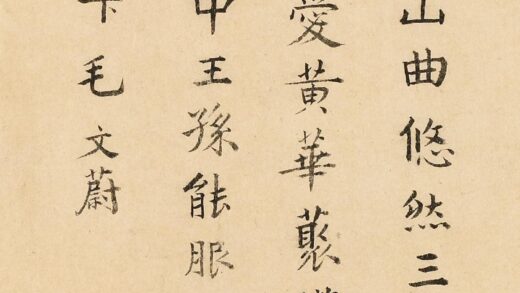 山曲悠然三
愛黃華裴
中王孫能服
下毛文蔚